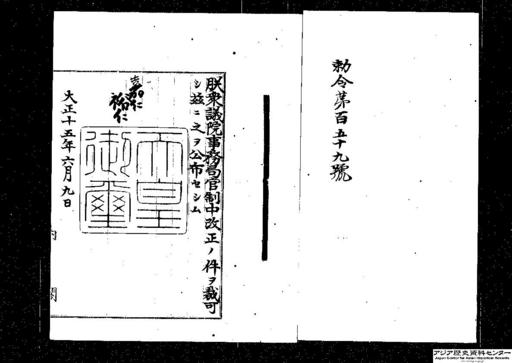 勅令第百五十九號
朕衆議院事務局官制中改正ノ件ヲ裁可
シ茲ニ之ヲ公布セシム
嘉仁
裕仁
天皇御璽
大正十五年六月九日
内閣
アジア歴史資料センター
Japan Center for Asian Historical Records